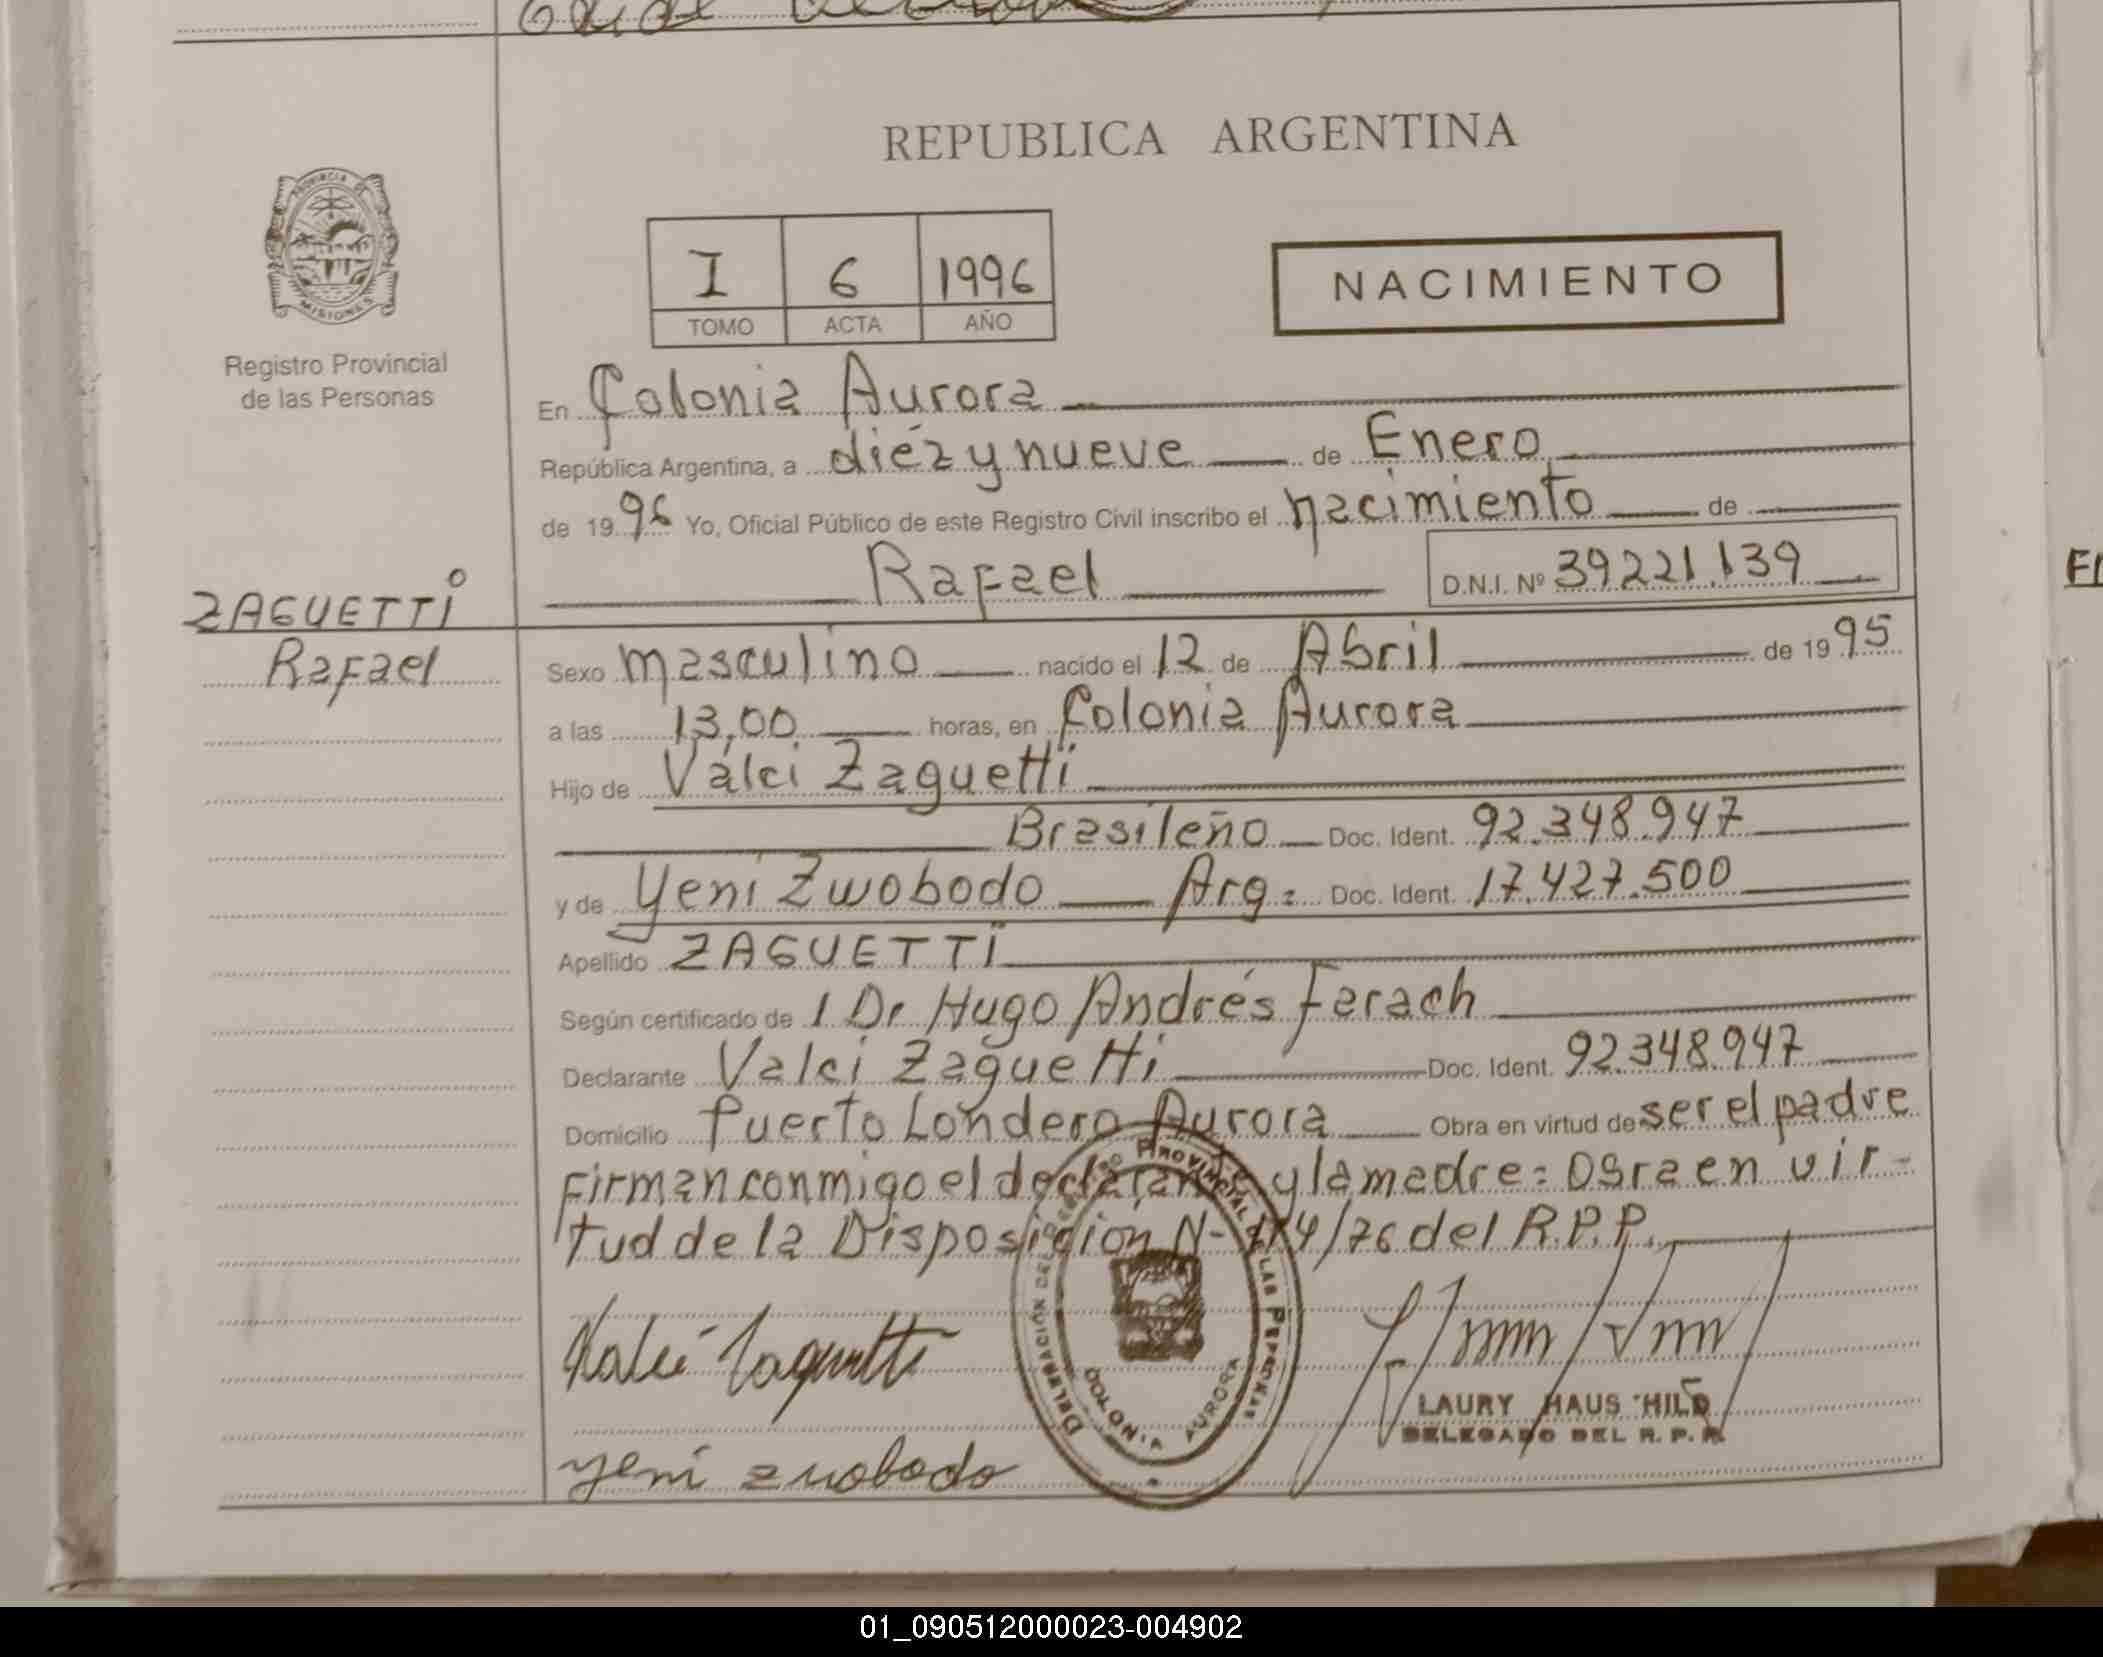 REPUBLICA ARGENTINA
PROVINCIA DE
MISIONES
Registro Provincial
de las Personas
I 6 1996
TOMO ACTA AÑO
NACIMIENTO
En Colonia Aurora
República Argentina, a diéz y nueve de Enero
de 1996 Yo, Oficial Público de este Registro Civil inscribo el nacimiento de
Rafael D.N.I. Nº 39221.139
ZAGUETTI
Rafael
Sexo masculino nacido el 12 de Abril de 1995
a las 13,00 horas, en Colonia Aurora
Hijo de Valci Zaguetti
Brasileño Doc. Ident. 92.348.947
y de Yeni Zwobodo Arg: Doc. Ident. 17.427.500
Apellido ZAGUETTI
Según certificado de 1 Dr Hugo Andrés Ferach
Declarante Valci Zaguetti Doc. Ident. 92.348.947
Domicilio Puerto Londero Aurora Obra en virtud de ser el padre
Firman conmigo el declarante y la madre: Obra en vir-
tud de la Disposición N- /76 del R.P.P.
Valci Zaguetti
yeni zwobodo
COLONIA AURORA
LAURY HAUS HILD
DELEGADO DEL R. P. P.
01_090512000023-004902